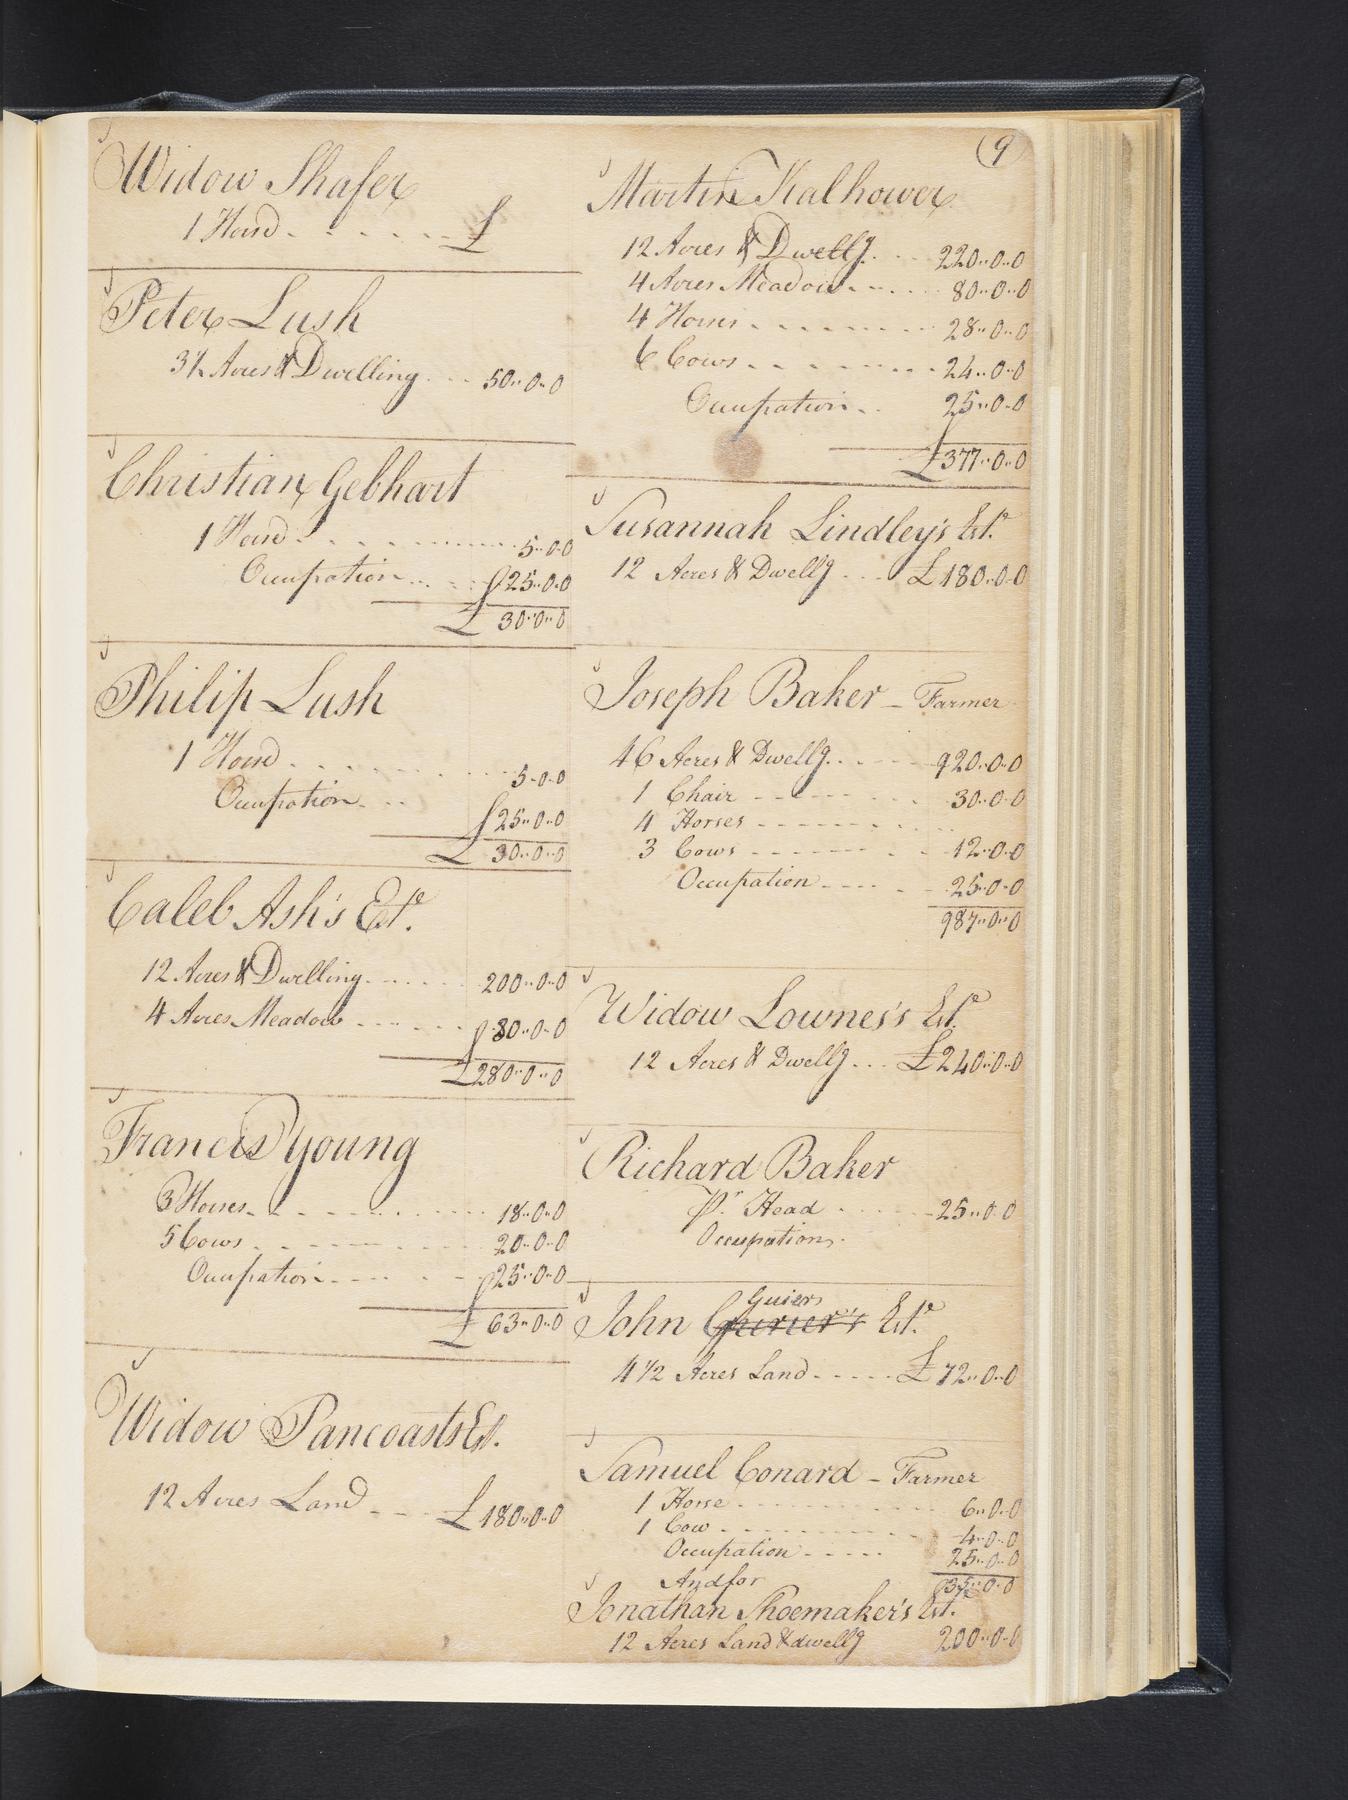 (9)
Widow Shafer
1 Horse £
Peter Lush
3½ Acres & Dwelling 50..0..0
Christian Gebhart
1 Horse 5..0.0
Occupation 25..0.0
£ 30..0..0
Philip Lush
1 Horse 5..0..0
Occupation 25..0..0
£ 30..0..0
Caleb Ash's Este.
12 Acres & Dwelling 200..0..0
4 Acres Meadow 80..0..0
£280..0..0
Francis Young
3 Horses 18..0..0
5 Cows 20..0..0
Occupation 25..0..0
£ 63..0..0
Widow Pancoasts Est.
12 Acres Land £180..0..0
Martin Kalhower
12 Acres & Dwellg. 220..0..0
4 Acres Meadow 80..0..0
4 Horses 28..0..0
6 Cows 24..0..0
Occupation 25..0..0
£377..0..0
Susannah Lindley's Este.
12 Acres & Dwellg £180..0..0
Joseph Baker - Farmer
46 Acres & Dwellg. 920..0..0
1 Chair 30..0..0
4 Horses
3 Cows 12..0..0
Occupation 25..0..0
987..0..0
Widow Lownes's Este.
12 Acres & Dwellg £240..0..0
Richard Baker
Pr. Head 25..0.0
Occupation
Guiers
John Este.
4 1/2 Acres Land £72..0..0
Samuel Conard - Farmer
1 Horse 6..0..0
1 Cow 4..0..0
Occupation 25..0..0
And for 35..0..0
Jonathan Shoemaker's Est.
12 Acres Land & dwellg 200..0..0